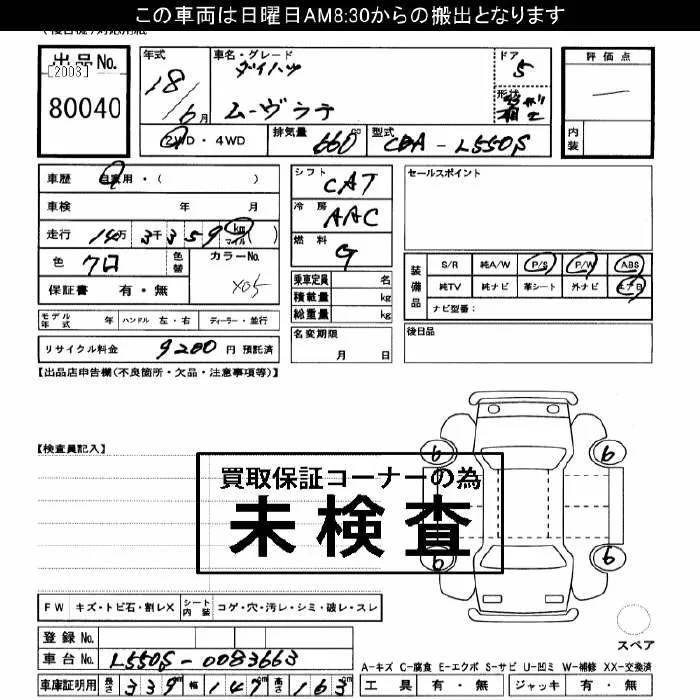 この車両は日曜日AM8:30からの搬出となります
出品No.
[2003]
80040
年式
18/6月
車名・グレード
ダイハツ
ムーヴラテ
ドア
5
形状
評価点
内装
2WD・4WD
排気量 660 cc
型式 CBA-L550S
車歴 自家用・( )
車検 年 月
走行 14万3千359 km マイル ( )
色 クロ 色替
カラーNo. X05
保証書 有・無
シフト CAT
冷房 AAC
燃料 G
乗車定員 名
積載量 kg
総重量 kg
セールスポイント
装備品
S/R 純A/W P/S P/W ABS
純TV 純ナビ 革シート 外ナビ エアB
ナビ型番:
モデル年式 年 ハンドル 左・右 ディーラー・並行
名変期限
月 日
後日品
リサイクル料金 9200 円 預託済
【出品店申告欄(不良箇所・欠品・注意事項等)】
【検査員記入】
6 6
買取保証コーナーの為
未検査
6 6
FW キズ・トビ石・割レX シート内装 コゲ・穴・汚レ・シミ・破レ・スレ
登録No.
車台No. L550S-0083663
スペア
A-キズ C-腐食 E-エクボ S-サビ U-凹ミ W-補修 XX-交換済
車庫証明用 長さ 339 cm 幅 147 cm 高さ 163 cm
工具 有・無 ジャッキ 有・無